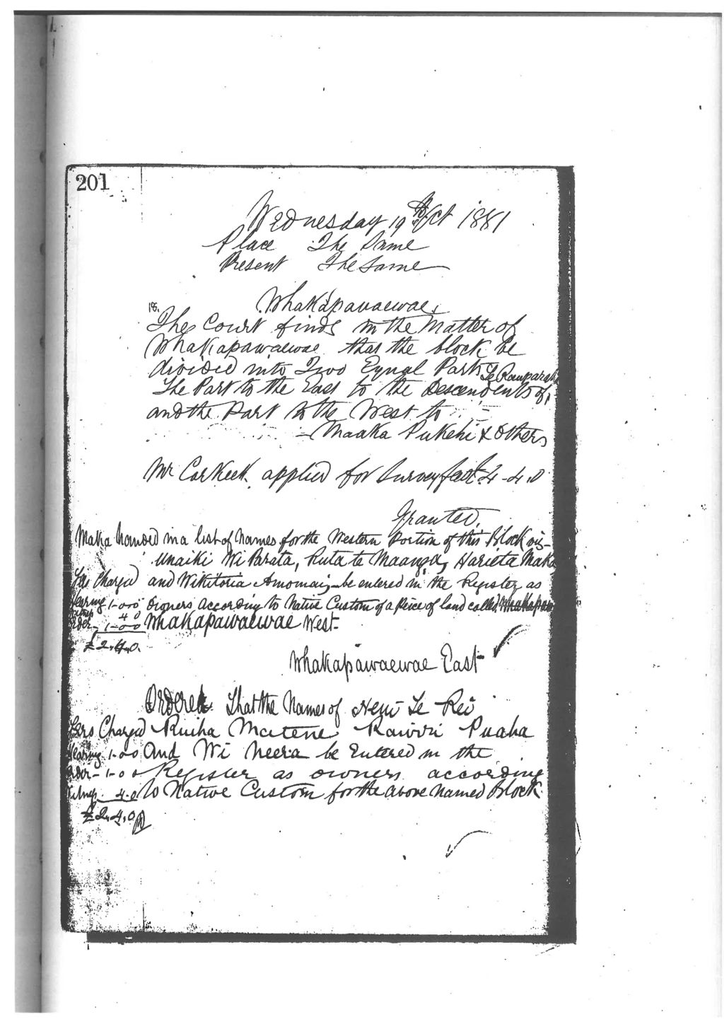 201
Wednesday 19th Oct 1881
Place The Same
Present The Same
Whakapawaewae
18.
The Court finds in the Matter of
Whakapawaewae that the block be
divided into Two Equal Parts
The Part to the East to the Descendents of Te Rauparaha
and the Part to the West to
Maaka Pukehi & Others
Mr Carkeek applied for Survey 4-4-0
Granted.
Maka handed in a list of Names for the Western Portion of this Block viz-
Unaiki Wi Parata, Ruta te Maanga, Harieta Maka
Fees Charged and Wikitoria Amomai be entered in the Register as
Hearing 1-0-0 owners according to Native Custom of a Piece of land called Whakapaw
4.0
Order 1-0-0 Whakapawaewae West-
£2.4.0.
Whakapawaewae East
Ordered That the Names of Heni Te Rei
Fees Charged Ruiha Matene Rawiri Puaha
Hearing 1-0-0 And Wi Neera be Entered in the
Order 1-0-0 Register as owners according
4.0 to Native Custom for the above Named Block
£2.4.0